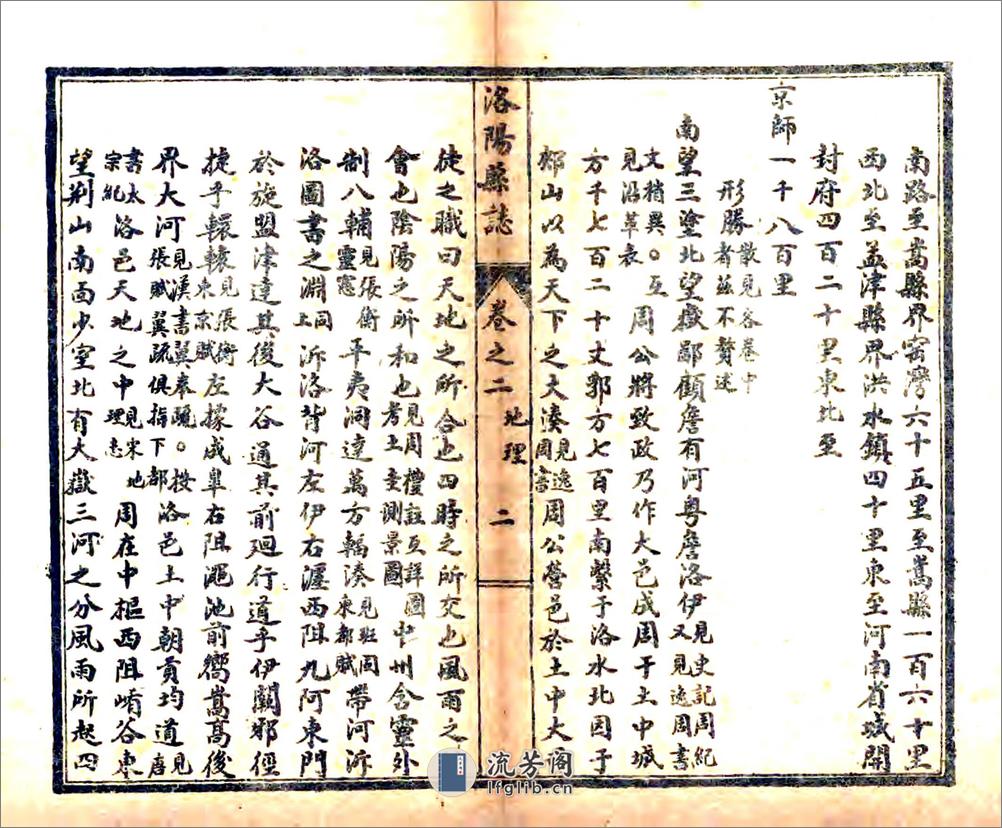 南路至嵩縣界窑灣六十五里至嵩縣一百六十里
西北至孟津縣界洪水鎮四十里東至河南省城開
封府四百二十里東北至
京師一千八百里
形勝散見各卷中者茲不贅述
南望三塗北望嶽鄙顧詹有河粵詹洛伊見史記周紀又見逸周書
文稍異。互見沿革表 周公將致政乃作大邑成周于土中城
方千七百二十丈郭方七百里南繫于洛水北因于
郟山以為天下之大湊見逸周書周公營邑於土中大
洛陽縣誌 卷之二 地理 二
徒之職曰天地之所合也四時之所交也風雨之所
會也陰陽之所和也見周禮註互詳圖考土圭測景圖 中州含靈外
制八輔見張衡靈憲 平夷洞達萬方輻湊見班固東都賦 帶河泝
洛圖書之淵同上 泝洛背河左伊右瀍西阻九阿東門
於旋盟津達其後大谷通其前廻行道乎伊闕邪徑
捷乎轘轅見張衡東京賦 左據成皋右阻澠池前嚮嵩高後
界大河見漢書翼奉疏。按張賦翼疏俱指下都 洛邑土中朝貢均道見唐
書太宗紀 洛邑天地之中見宋地理志 周在中樞西阻崤谷東
望荆山南面少室北有大嶽三河之分風雨所起四
流芳阁
lfglib.cn